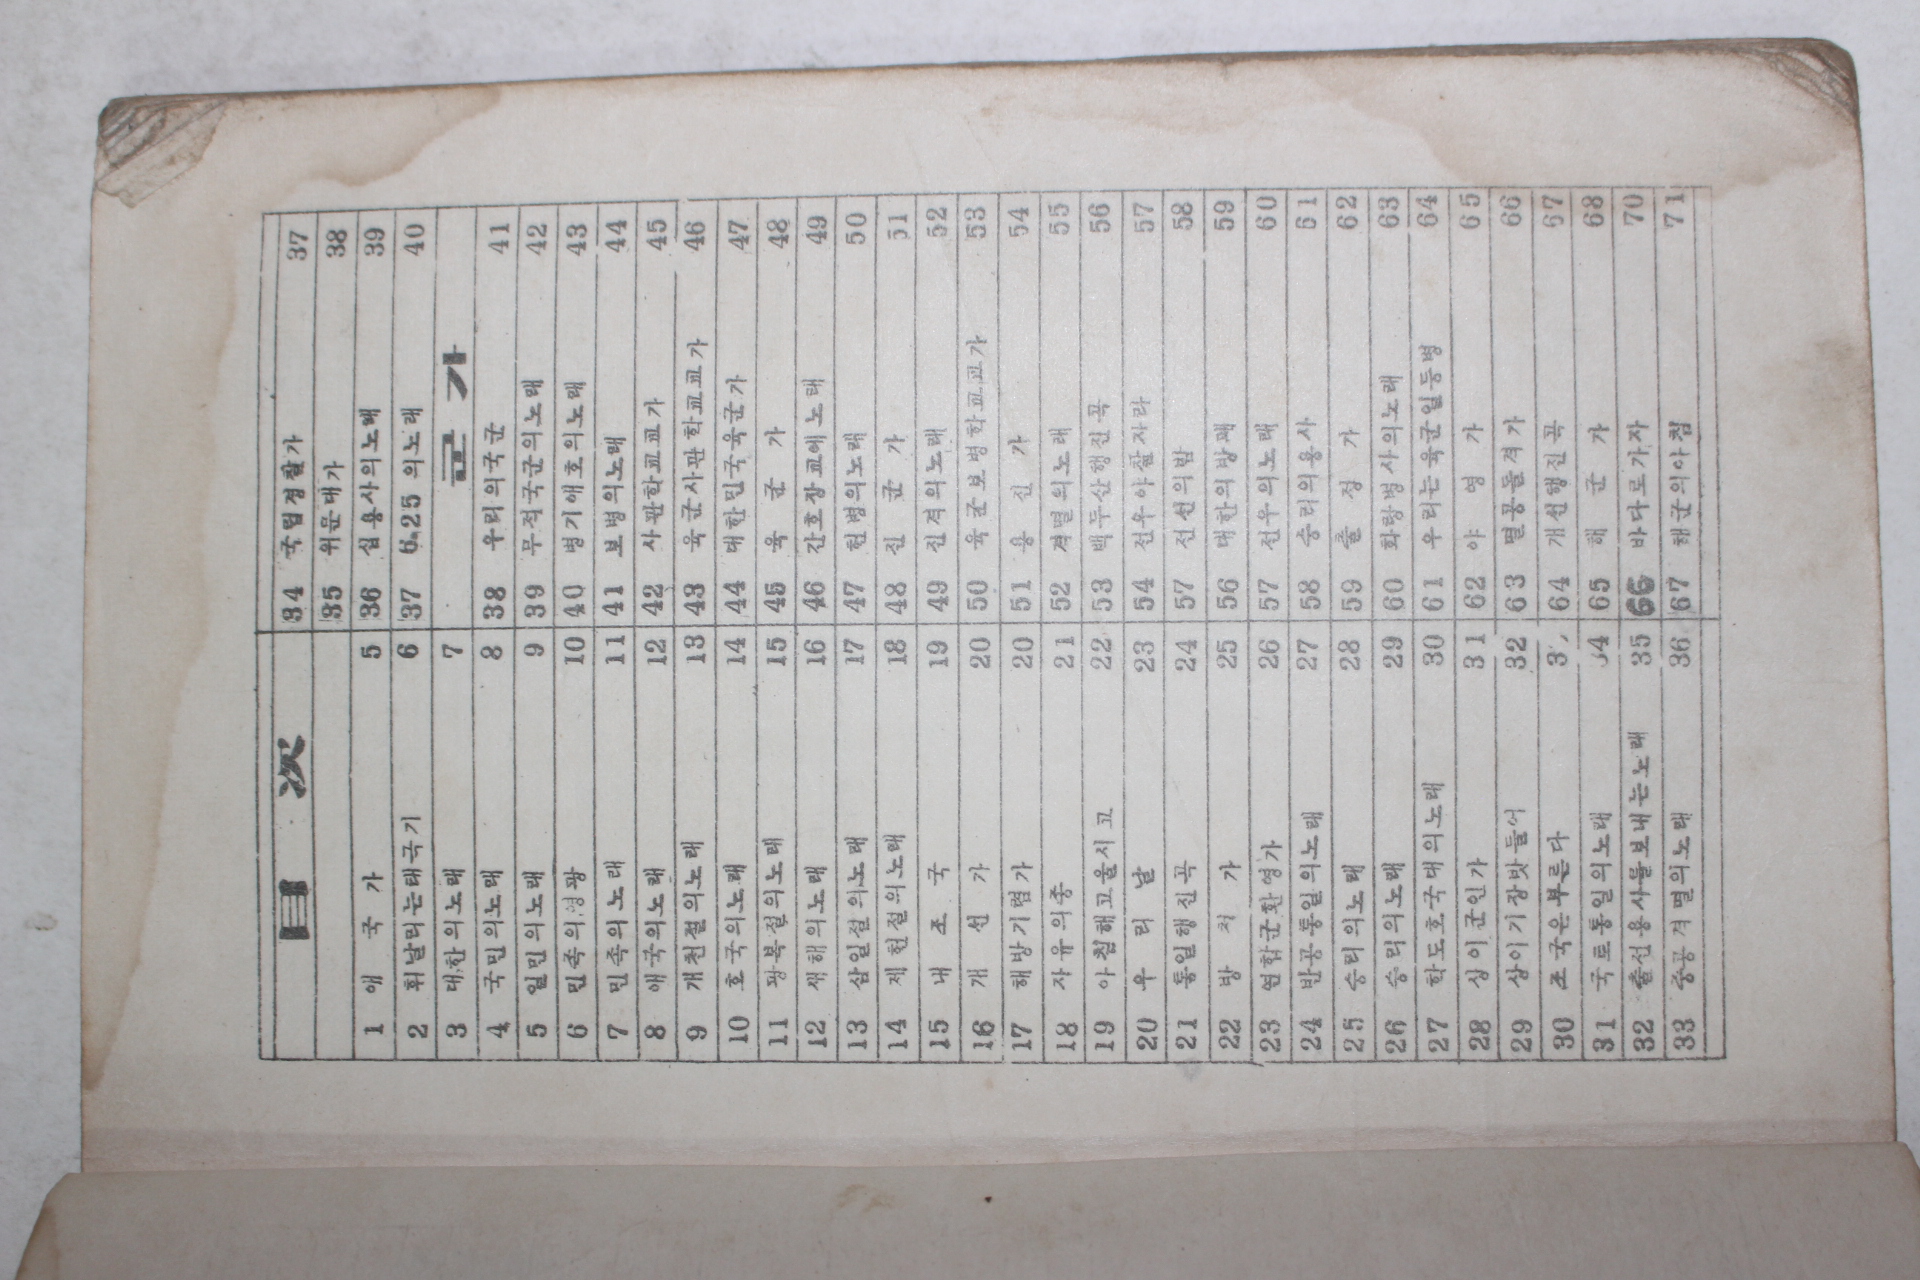 目 次
1 애국가 5
2 휘날리는태극기 6
3 대한의노래 7
4 국민의노래 8
5 일민의노래 9
6 민족의영광 10
7 민족의노래 11
8 애국의노래 12
9 개천절의노래 13
10 호국의노래 14
11 광복절의노래 15
12 새해의노래 16
13 삼일절의노래 17
14 제헌절의노래 18
15 내조국 19
16 개선가 20
17 해방기렴가 20
18 자유의종 21
19 아침해고울시고 22
20 우리날 23
21 통일행진곡 24
22 방척가 25
23 연합군환영가 26
24 반공통일의노래 27
25 승리의노래 28
26 승리의노래 29
27 학도호국대의노래 30
28 상이군인가 31
29 상이기장밧들어 32
30 조국은부른다
31 국토통일의노래 34
32 출선용사를보내는노래 35
33 중공격멸의노래 36
34 국립경찰가 37
35 위문대가 38
36 십용사의노래 39
37 6.25 의노래 40
군 가
38 우리의국군 41
39 무적국군의노래 42
40 병기애호의노래 43
41 보병의노래 44
42 사관학교교가 45
43 육군사관학교교가 46
44 대한민국육군가 47
45 육군가 48
46 간호장교에노래 49
47 헌병의노래 50
48 진군가 51
49 진격의노래 52
50 육군보병학교교가 53
51 용진가 54
52 격멸의노래 55
53 백두산행진곡 56
54 전우야잘자라 57
57 전선의밤 58
56 대한의방패 59
57 전우의노래 60
58 승리의용사 61
59 출정가 62
60 화랑병사의노래 63
61 우리는육군일등병 64
62 야영가 65
63 멸공돌격가 66
64 개선행진곡 67
65 해군가 68
66 바다로가자 70
67 해군의아침 71